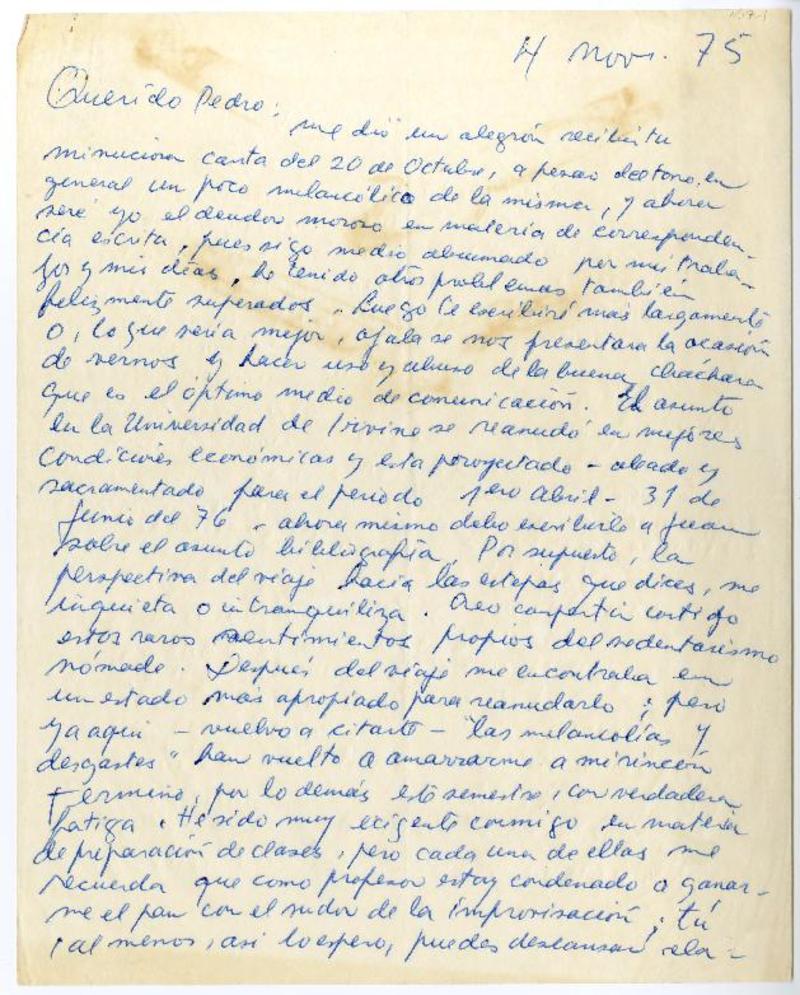 4 Nov. 75
Querido Pedro:
me dió un alegrón recibir tu
minuciosa carta del 20 de Octubre, a pesar del tono, en
general un poco melancólico de la misma, y ahora
seré yo el deudor moroso en materia de corresponden-
cia escrita, pues sigo medio abrumado por mis traba-
jos y mis días, he tenido otros problemas también
felizmente superados. Luego te escribiré más largamente
o, lo que sería mejor, ojala se nos presentara la ocasión
de vernos y hacer uso y abuso de la buena cháchara
que es el óptimo medio de comunicación. El asunto
en la Universidad de Irvine se reanudó en mejores
condiciones económicas y esta proyectado - atado y
sacramentado para el período 1ero Abril - 31 de
Junio del 76 - ahora mismo debo escribirle a Juan
sobre el asunto bibliografía. Por supuesto, la
perspectiva del viaje hacia las estepas que dices, me
inquieta o intranquiliza. Creo compartir contigo
estos raros sentimientos propios del sedentarismo
nómade. Después del viaje me encontraba en
un estado más apropiado para reanudarlo; pero
ya aquí - vuelvo a citarte - "las melancolías y
desgastes" han vuelto a amarrarme a mi rincón
Termino, por lo demás este semestre, con verdadera
fatiga. He sido muy exigente conmigo en materia
de preparación de clases, pero cada una de ellas me
recuerda que como profesor estoy condenado a ganar-
me el pan con el sudor de la improvisación; tú
al menos, así lo espero, puedes descansar rela-